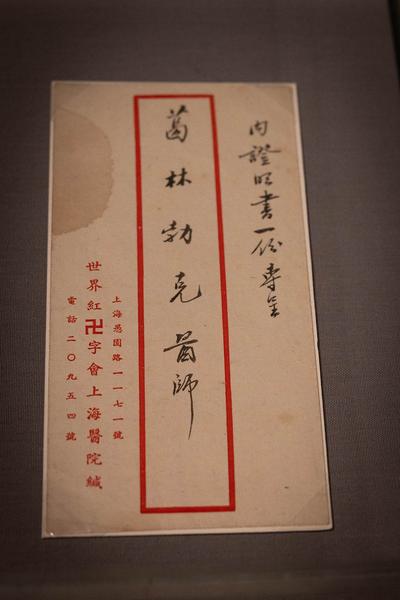 內證明書一份專呈
葛林勃克醫師
上海愚園路一一七一號
世界紅卍字會上海醫院緘
電話二〇九五四號